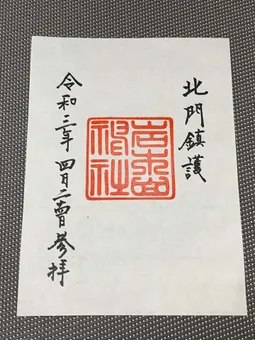 北門鎮護
岩木山
神社
令和三年 四月 參拝